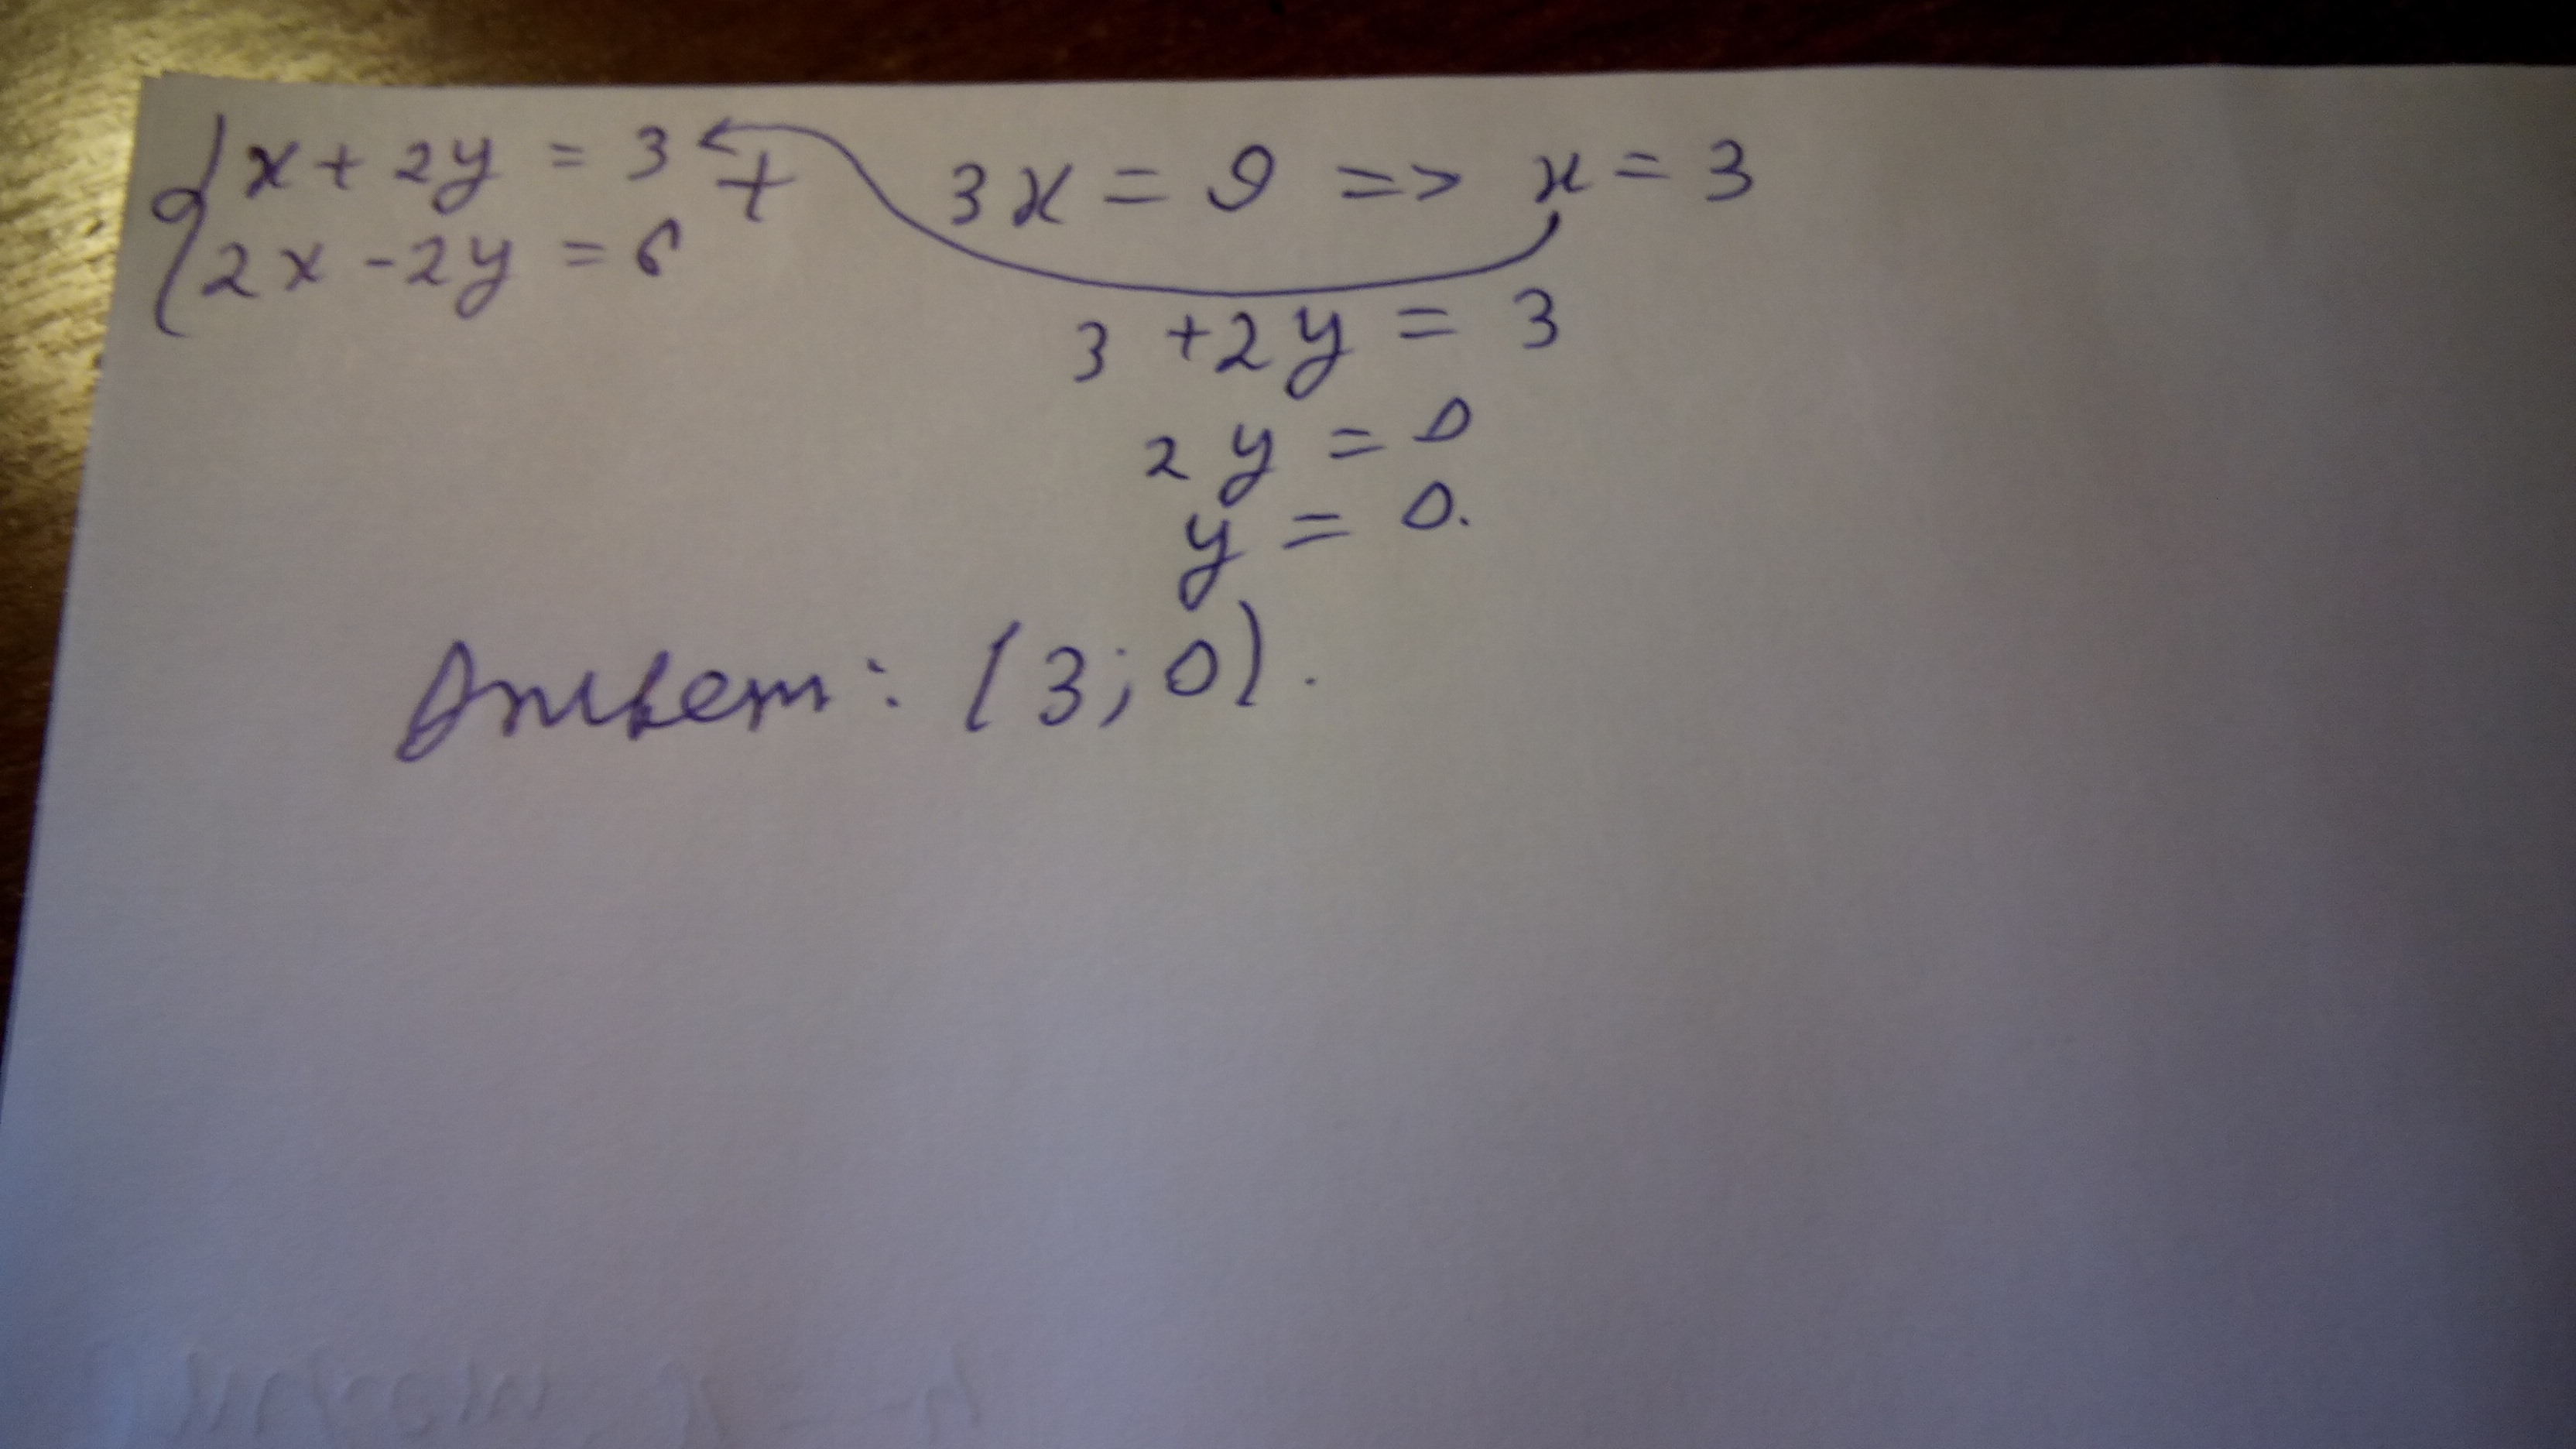 x + 2y = 3
2x - 2y = 6
+
3x = 9 => x = 3
3 + 2y = 3
2y = 0
y = 0.
Ответ: (3; 0).